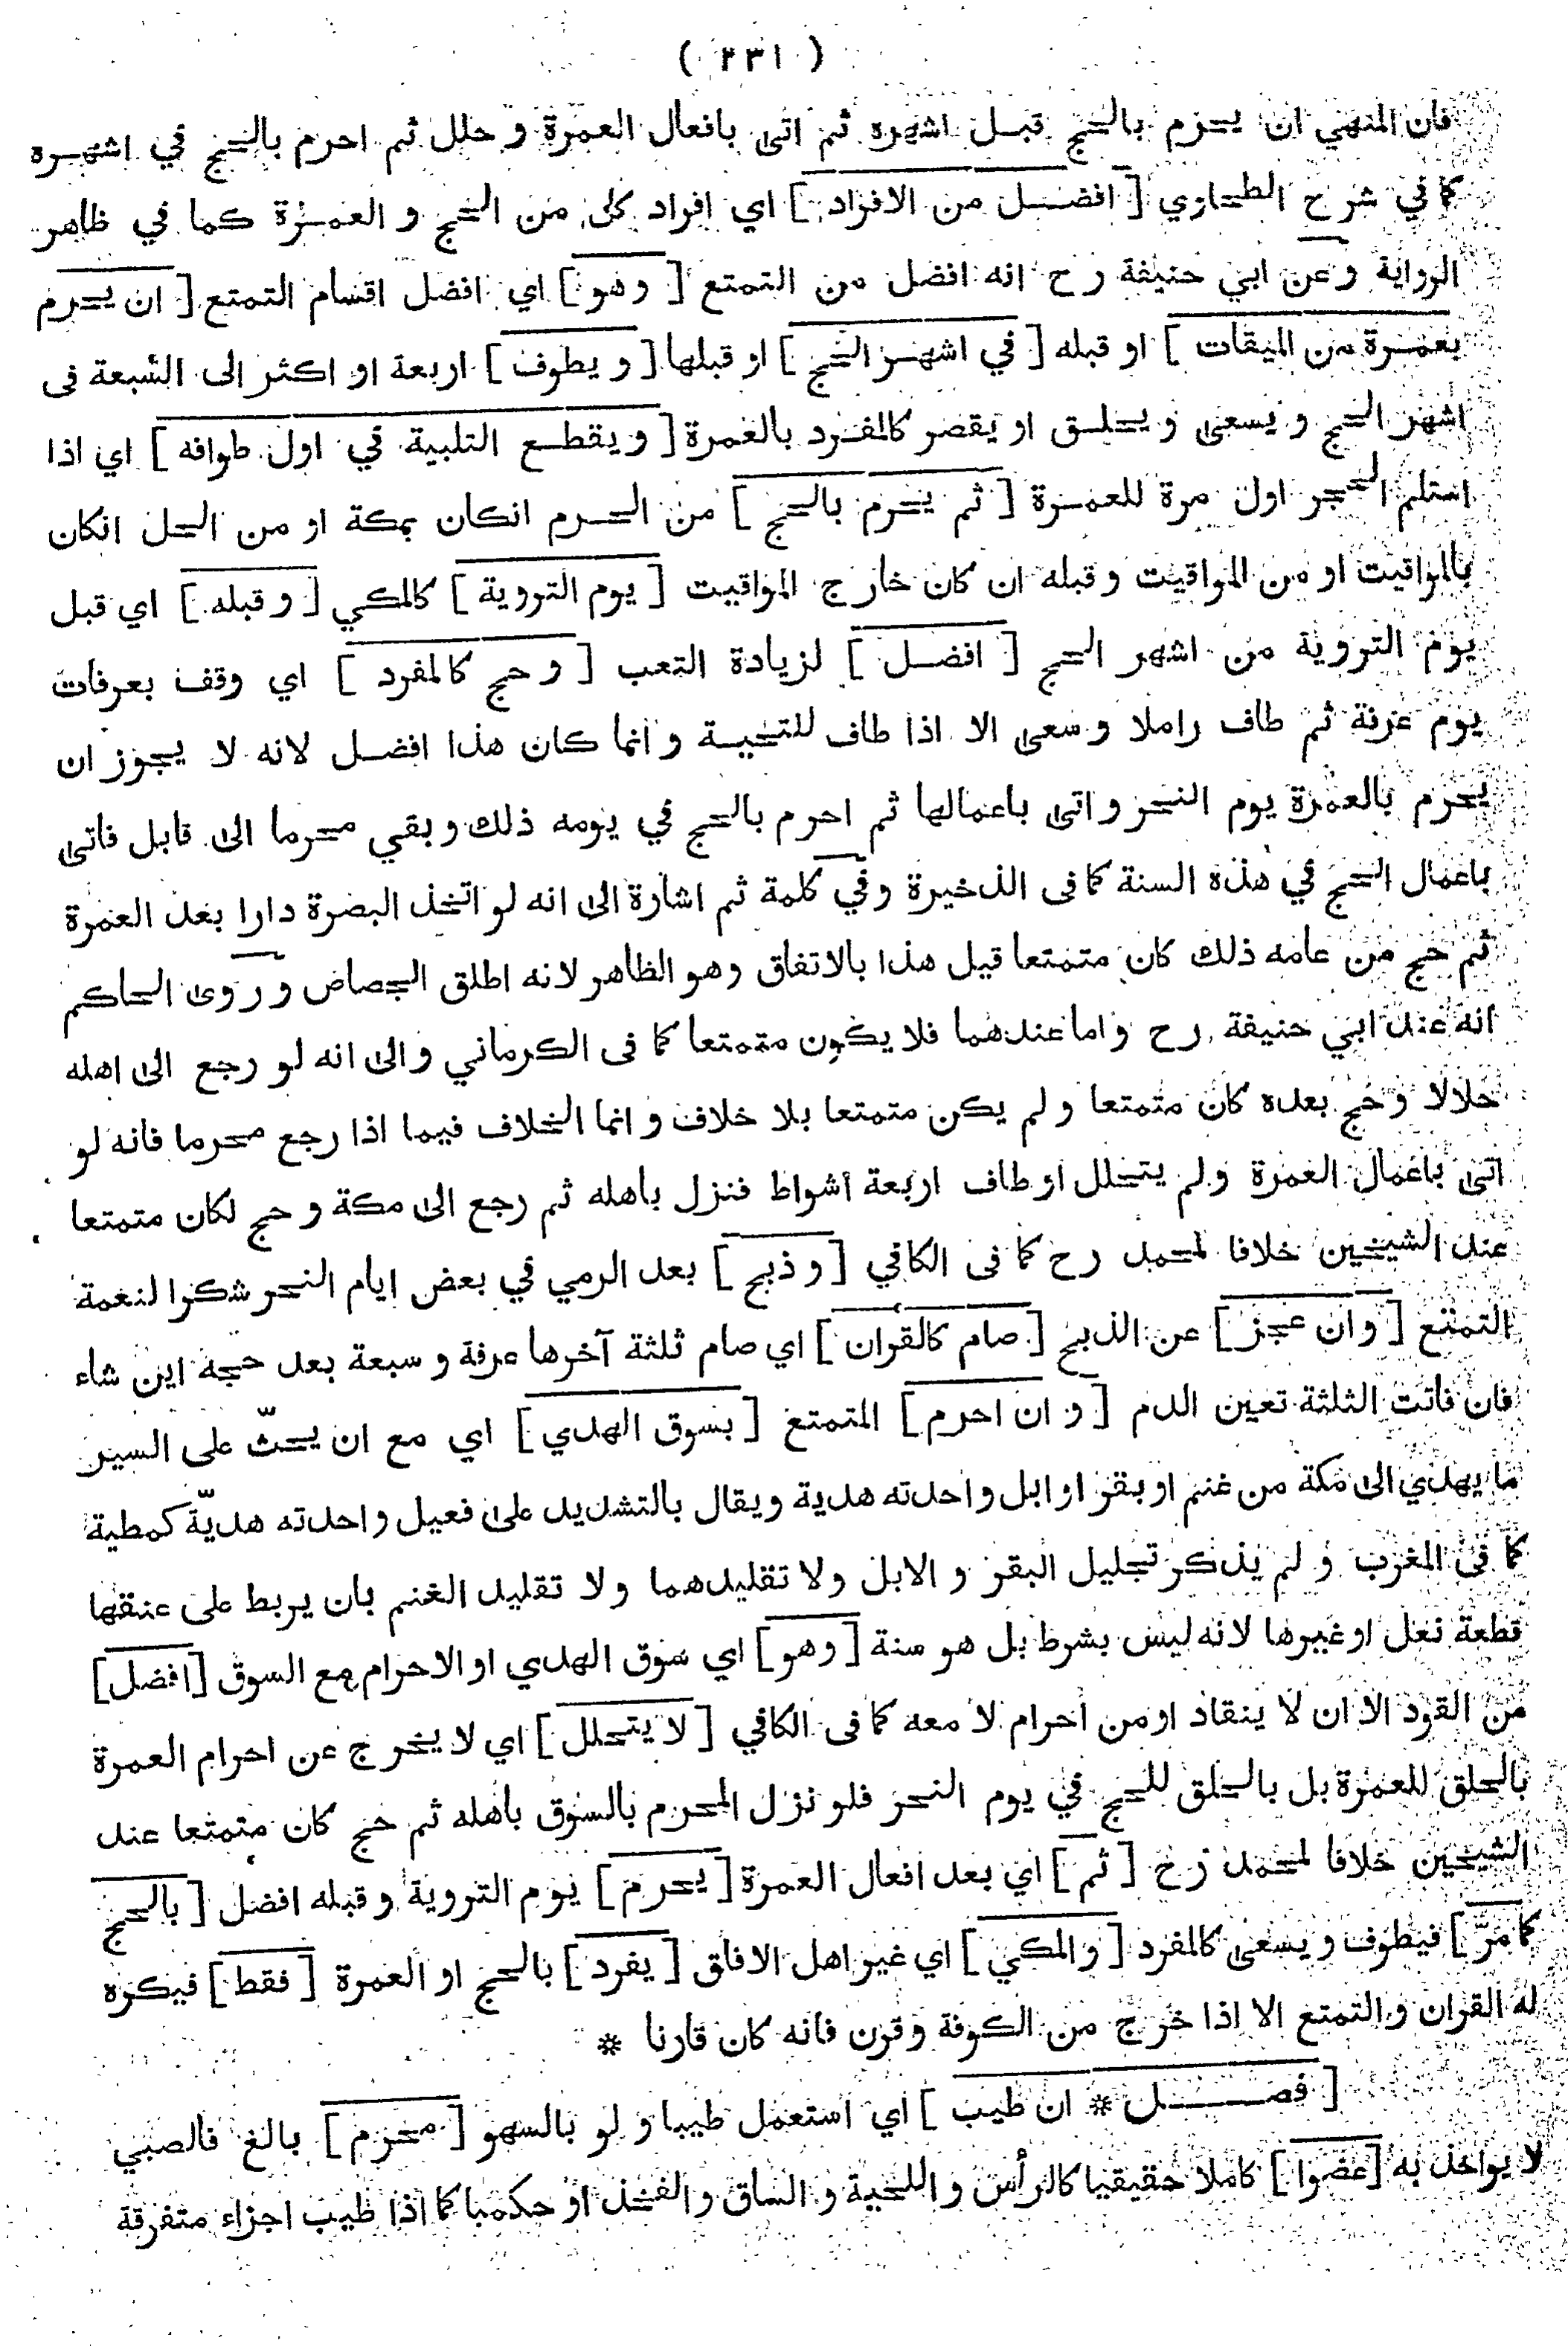 ( ٢٣١ )
فان المنهي ان يحرم بالحج قبل اشهره ثم اتى بافعال العمرة و حلل ثم احرم بالحج في اشهره
كما في شرح الطحاوي [ افضل من الافراد ] اي افراد كل من الحج و العمرة كما في ظاهر
الرواية وعن ابي حنيفة رح انه افضل من التمتع [ وهو ] اي افضل اقسام التمتع [ ان يحرم
بعمرة من الميقات ] او قبله [ في اشهر الحج ] او قبلها [ و يطوف ] اربعة او اكثر الى السبعة فى
اشهر الحج و يسعى و يحلق او يقصر كالمفرد بالعمرة [ و يقطع التلبية في اول طوافه ] اي اذا
استلم الحجر اول مرة للعمرة [ ثم يحرم بالحج ] من الحرم انكان بمكة او من الحل انكان
بالمواقيت او من المواقيت و قبله ان كان خارج المواقيت [ يوم التروية ] كالمكي [ و قبله ] اي قبل
يوم التروية من اشهر الحج [ افضل ] لزيادة التعب [ و حج كالمفرد ] اي وقف بعرفات
يوم عرفة ثم طاف راملا و سعى الا اذا طاف للتحية و انما كان هذا افضل لانه لا يجوز ان
يحرم بالعمرة يوم النحر و اتى باعمالها ثم احرم بالحج في يومه ذلك و بقي محرما الى قابل فاتى
باعمال الحج في هذه السنة كما فى الذخيرة وفي كلمة ثم اشارة الى انه لو اتخذ البصرة دارا بعد العمرة
ثم حج من عامه ذلك كان متمتعا قيل هذا بالاتفاق وهو الظاهر لانه اطلق الجصاص و روى الحاكم
انه عند ابي حنيفة رح و اما عندهما فلا يكون متمتعا كما فى الكرماني والى انه لو رجع الى اهله
حلالا و حج بعده كان متمتعا و لم يكن متمتعا بلا خلاف و انما الخلاف فيما اذا رجع محرما فانه لو
اتى باعمال العمرة ولم يتحلل او طاف اربعة اشواط فنزل باهله ثم رجع الى مكة و حج لكان متمتعا
عند الشيخين خلافا لمحمد رح كما فى الكافي [ و ذبح ] بعد الرمي في بعض ايام النحر شكرا لنعمة
التمتع [ وان عجز ] عن الذبح [ صام كالقران ] اي صام ثلثة آخرها عرفة و سبعة بعد حجه اين شاء
فان فاتت الثلثة تعين الدم [ و ان احرم ] المتمتع [ بسوق الهدي ] اي مع ان يحثّ على السير
ما يهدي الى مكة من غنم او بقر او ابل واحدته هدية ويقال بالتشديد على فعيل واحدته هديّة كمطية
كما فى المغرب و لم يذكر تجليل البقر و الابل ولا تقليدهما ولا تقليد الغنم بان يربط على عنقها
قطعة نعل او غيرها لانه ليس بشرط بل هو سنة [ وهو ] اي سوق الهدي او الاحرام مع السوق [ افضل ]
من القود الا ان لا ينقاد او من احرام لا معه كما فى الكافي [ لا يتحلل ] اي لا يخرج عن احرام العمرة
بالحلق للعمرة بل بالحلق للحج في يوم النحر فلو نزل المحرم بالسوق باهله ثم حج كان متمتعا عند
الشيخين خلافا لمحمد رح [ ثم ] اي بعد افعال العمرة [ يحرم ] يوم التروية و قبله افضل [ بالحج
كما مرّ ] فيطوف و يسعى كالمفرد [ والمكي ] اي غير اهل الافاق [ يفرد ] بالحج او العمرة [ فقط ] فيكره
له القران و التمتع الا اذا خرج من الكوفة وقرن فانه كان قارنا *
[ فصل * ان طيب ] اي استعمل طيبا و لو بالسهو [ محرم ] بالغ فالصبي
لا يواخذ به [ عضوا ] كاملا حقيقيا كالرأس و اللحية و الساق و الفخذ او حكميا كما اذا طيب اجزاء متفرقة